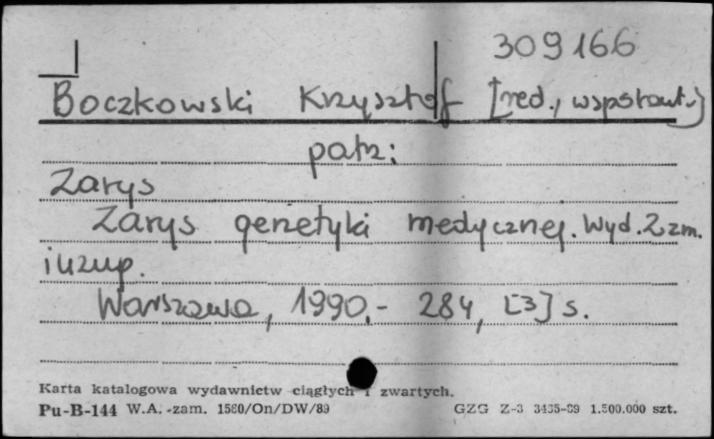 309166
Boczkowski Krzysztof [red., współaut.]
patrz:
Zarys
Zarys genetyki medycznej. Wyd. 2 zm.
i uzup.
Warszawa, 1990.- 284, [3] s.
Karta katalogowa wydawnictw ciągłych i zwartych.
Pu-B-144 W.A. -zam. 1580/On/DW/89 GZG Z-3 3435-89 1.500.000 szt.